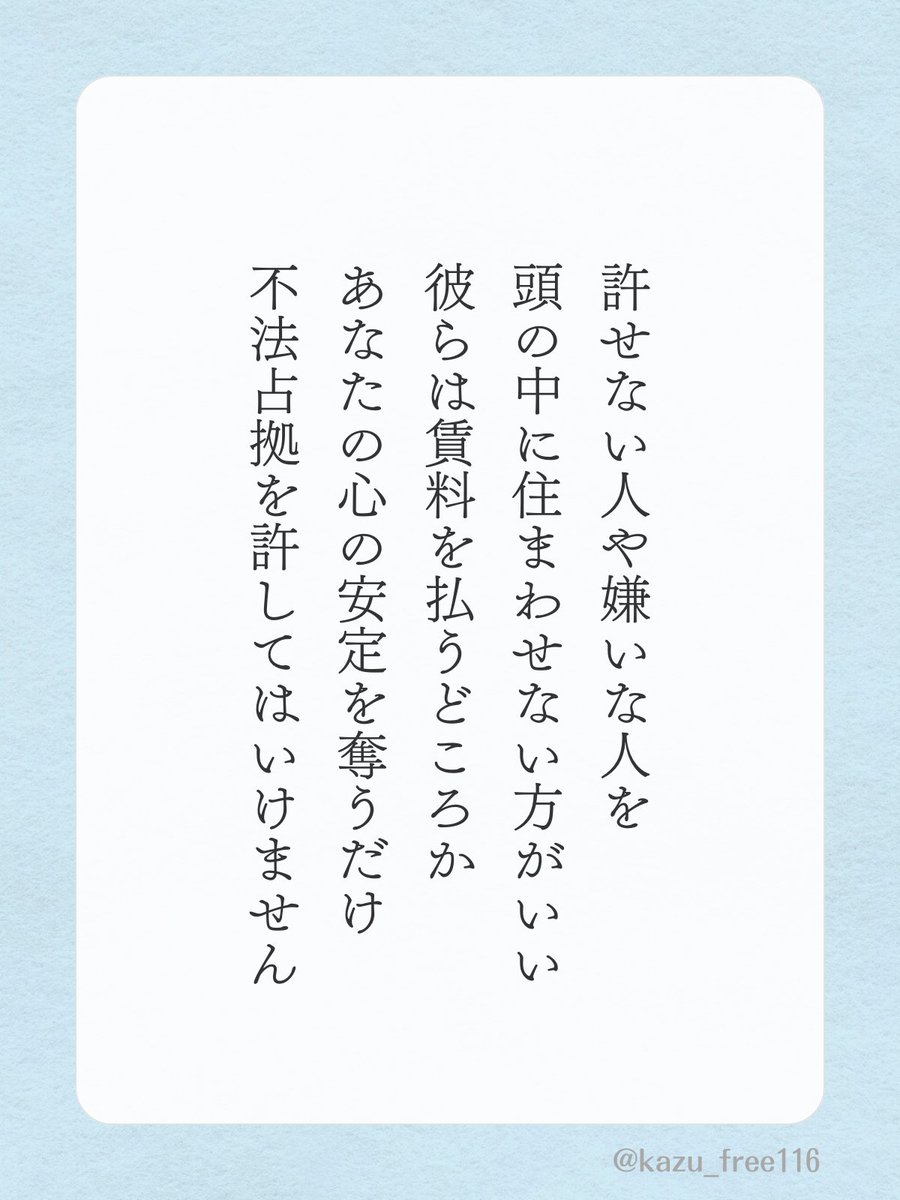 許せない人や嫌いな人を
頭の中に住まわせない方がいい
彼らは賃料を払うどころか
あなたの心の安定を奪うだけ
不法占拠を許してはいけません
@kazu_free116